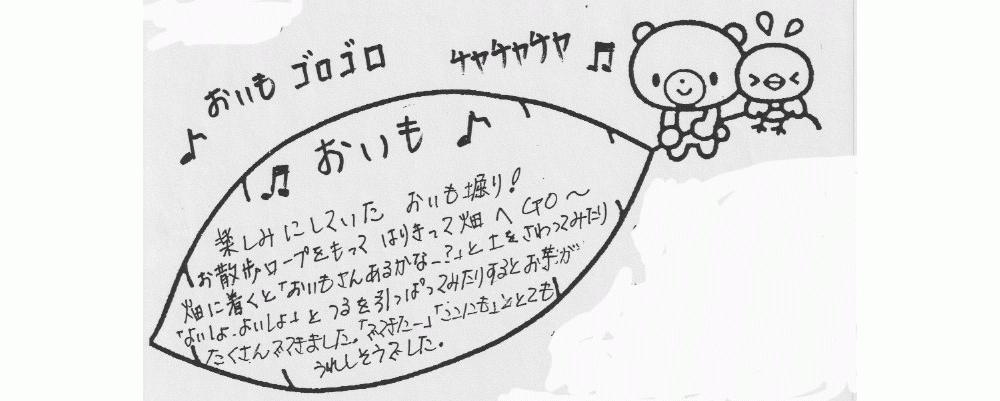 おいも ゴロゴロ
チャチャチャ
おいも
楽しみにしていた おいも堀り!
お散歩ロープをもって はりきって畑へ GO〜
畑に着くと「おいもさんあるかなー?」と土をさわってみたり
「よいしょ、よいしょ」とつるを引っぱってみたりするとお芋が
たくさんでてきました。「でてきたー」「ここにも」ととても
うれしそうでした。